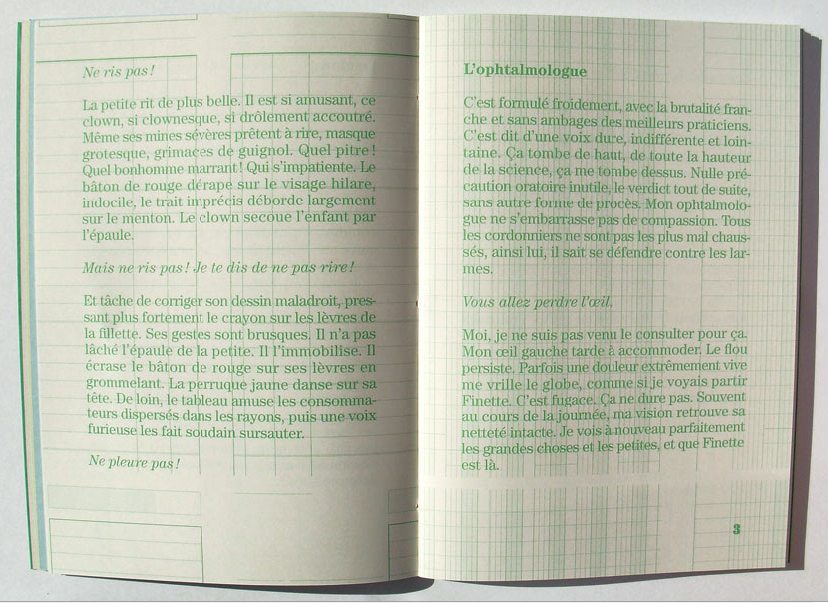 Ne ris pas !
La petite rit de plus belle. Il est si amusant, ce
clown, si clownesque, si drôlement accoutré.
Même ses mines sévères prêtent à rire, masque
grotesque, grimaces de guignol. Quel pitre !
Quel bonhomme marrant ! Qui s'impatiente. Le
bâton de rouge dérape sur le visage hilare,
indocile, le trait imprécis déborde largement
sur le menton. Le clown secoue l'enfant par
l'épaule.
Mais ne ris pas ! Je te dis de ne pas rire !
Et tâche de corriger son dessin maladroit, pres-
sant plus fortement le crayon sur les lèvres de
la fillette. Ses gestes sont brusques. Il n'a pas
lâché l'épaule de la petite. Il l'immobilise. Il
écrase le bâton de rouge sur ses lèvres en
grommelant. La perruque jaune danse sur sa
tête. De loin, le tableau amuse les consomma-
teurs dispersés dans les rayons, puis une voix
furieuse les fait soudain sursauter.
Ne pleure pas !
L'ophtalmologue
C'est formulé froidement, avec la brutalité fran-
che et sans ambages des meilleurs praticiens.
C'est dit d'une voix dure, indifférente et loin-
taine. Ça tombe de haut, de toute la hauteur
de la science, ça me tombe dessus. Nulle pré-
caution oratoire inutile, le verdict tout de suite,
sans autre forme de procès. Mon ophtalmolo-
gue ne s'embarrasse pas de compassion. Tous
les cordonniers ne sont pas les plus mal chaus-
sés, ainsi lui, il sait se défendre contre les lar-
mes.
Vous allez perdre l'œil.
Moi, je ne suis pas venu le consulter pour ça.
Mon œil gauche tarde à accommoder. Le flou
persiste. Parfois une douleur extrêmement vive
me vrille le globe, comme si je voyais partir
Finette. C'est fugace. Ça ne dure pas. Souvent
au cours de la journée, ma vision retrouve sa
netteté intacte. Je vois à nouveau parfaitement
les grandes choses et les petites, et que Finette
est là.
3